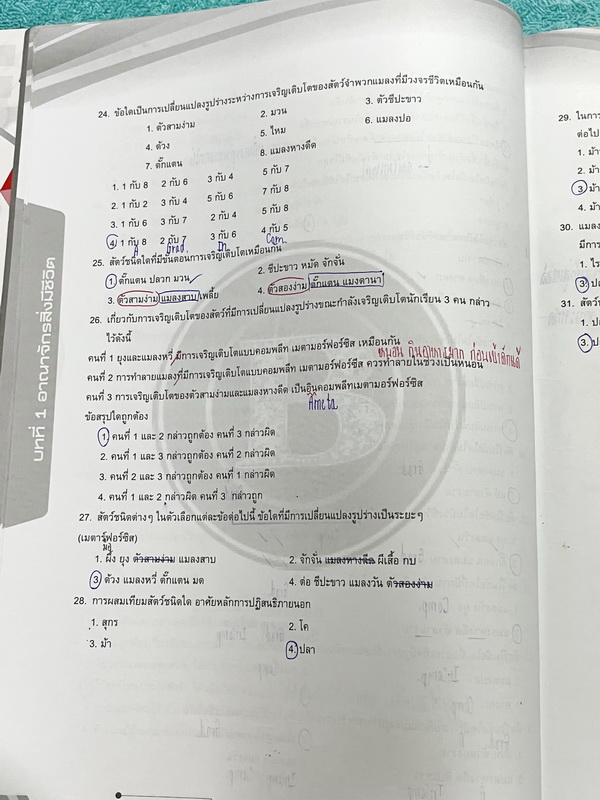 24. ข้อใดเป็นการเปลี่ยนแปลงรูปร่างระหว่างการเจริญเติบโตของสัตว์จำพวกแมลงที่มีวงจรชีวิตเหมือนกัน
1. ตัวสามง่าม 2. มวน 3. ตัวชีปะขาว
4. ด้วง 5. ไหม 6. แมลงปอ
7. ตั๊กแตน 8. แมลงหางดีด
1. 1 กับ 8 2 กับ 6 3 กับ 4 5 กับ 7
2. 1 กับ 2 3 กับ 4 5 กับ 6 7 กับ 8
3. 1 กับ 6 3 กับ 7 2 กับ 4 5 กับ 8
4. 1 กับ 8 2 กับ 7 3 กับ 6 4 กับ 5
A Grad. In Com.
25. สัตว์ชนิดใดที่มีขั้นตอนการเจริญเติบโตเหมือนกัน
1 ตั๊กแตน ปลวก มวน 2. ชีปะขาว หมัด จักจั่น
3. ตัวสามง่าม แมลงสาบ เพลี้ย 4. ตัวสองง่าม ตั๊กแตน แมงดานา
26. เกี่ยวกับการเจริญเติบโตของสัตว์ที่มีการเปลี่ยนแปลงรูปร่างขณะกำลังเจริญเติบโตนักเรียน 3 คน กล่าว
ไว้ดังนี้
คนที่ 1 ยุงและแมลงหวี่ มีการเจริญเติบโตแบบคอมพลีท เมตามอร์ฟอร์ซีส เหมือนกัน
หนอน กินอาหารมาก ก่อนเข้าดักแด้
คนที่ 2 การทำลายแมลงที่มีการเจริญเติบโตแบบคอมพลีท เมตามอร์ฟอร์ซีส ควรทำลายในช่วงเป็นหนอน
คนที่ 3 การเจริญเติบโตของตัวสามง่ามและแมลงหางดีด เป็นอินคอมพลีทเมตามอร์ฟอร์ซีส
Ameta
ข้อสรุปใดถูกต้อง
1 คนที่ 1 และ 2 กล่าวถูกต้อง คนที่ 3 กล่าวผิด
2. คนที่ 1 และ 3 กล่าวถูกต้อง คนที่ 2 กล่าวผิด
3. คนที่ 2 และ 3 กล่าวถูกต้อง คนที่ 1 กล่าวผิด
4. คนที่ 1 และ 2 กล่าวผิด คนที่ 3 กล่าวถูก
27. สัตว์ชนิดต่างๆ ในตัวเลือกแต่ละข้อต่อไปนี้ ข้อใดที่มีการเปลี่ยนแปลงรูปร่างเป็นระยะๆ
(เมตาร์ฟอร์ซีส)
มอ
1. ผึ้ง ยุง ตัวสามง่าม แมลงสาบ 2. จักจั่น แมลงหางดีด ผีเสื้อ กบ
3 ด้วง แมลงหวี่ ตั๊กแตน มด 4. ต่อ ชีปะขาว แมลงวัน ตัวสองง่าม
28. การผสมเทียมสัตว์ชนิดใด อาศัยหลักการปฏิสนธิภายนอก
1. สุกร 2. โค
3. ม้า 4. ปลา
บทที่ 1 อาณาจักรสิ่งมีชีวิต
29. ในการ
ต่อไป
1. ม้า
2. ม้า
3 ม้า
4. ม้า
30. แมลง
มีการ
1. ไร
3 ปล
31. สัตว์
1. ปล
3. ป